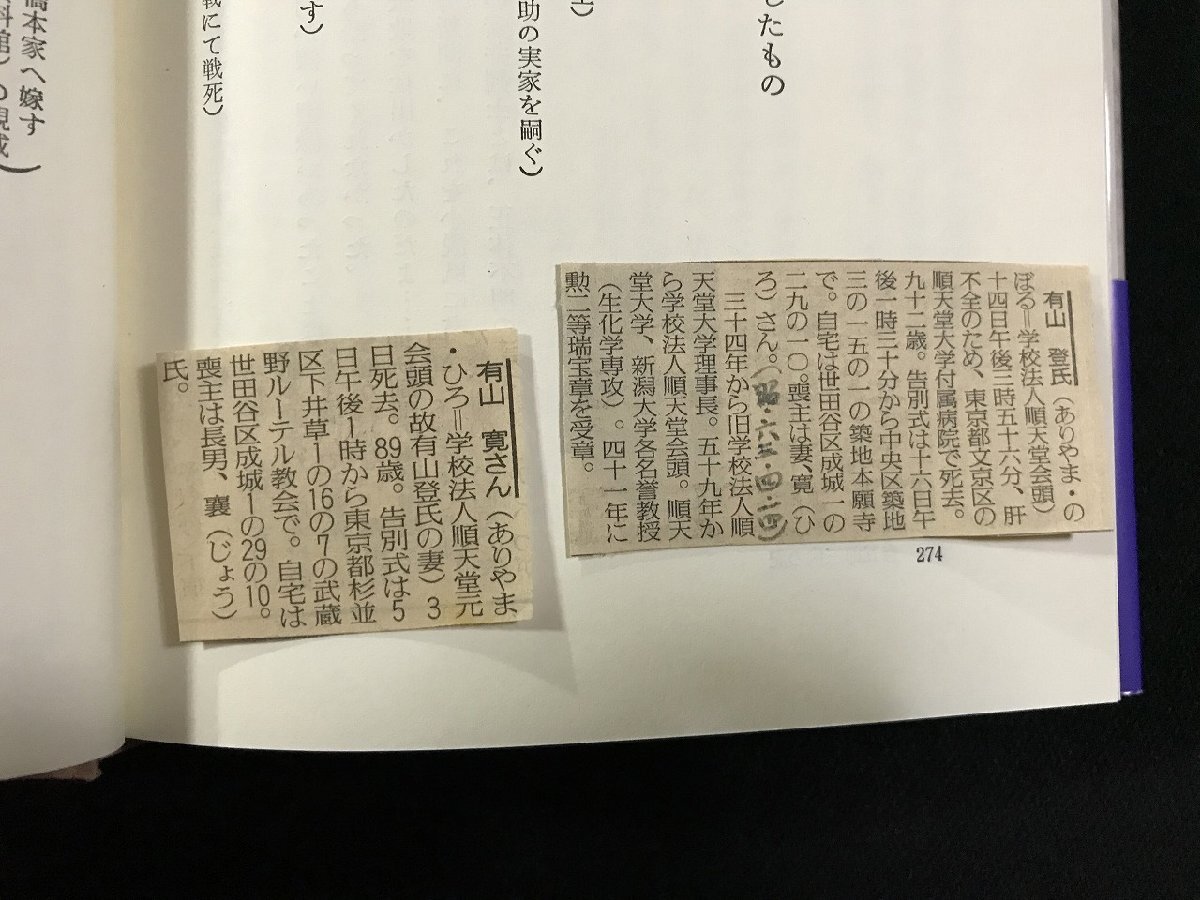 したもの
助の実家を嗣ぐ）
す）
戦にて戦死）
橋本家へ嫁す
有山　登氏（ありやま・の
ぼる＝学校法人順天堂会頭）
十四日午後三時五十六分、肝
不全のため、東京都文京区の
順天堂大学付属病院で死去。
九十二歳。告別式は十六日午
後一時三十分から中央区築地
三の一五の一の築地本願寺
で。自宅は世田谷区成城一の
二九の一〇。喪主は妻、寛（ひ
ろ）さん。（昭・六三・四・一四）
三十四年から旧学校法人順
天堂大学理事長。五十九年か
ら学校法人順天堂会頭。順天
堂大学、新潟大学各名誉教授
（生化学専攻）。四十一年に
勲二等瑞宝章を受章。
274
有山　寛さん（ありやま
・ひろ＝学校法人順天堂元
会頭の故有山登氏の妻）3
日死去。89歳。告別式は5
日午後1時から東京都杉並
区下井草1の16の7の武蔵
野ルーテル教会で。自宅は
世田谷区成城1の29の10。
喪主は長男、襄（じょう）
氏。